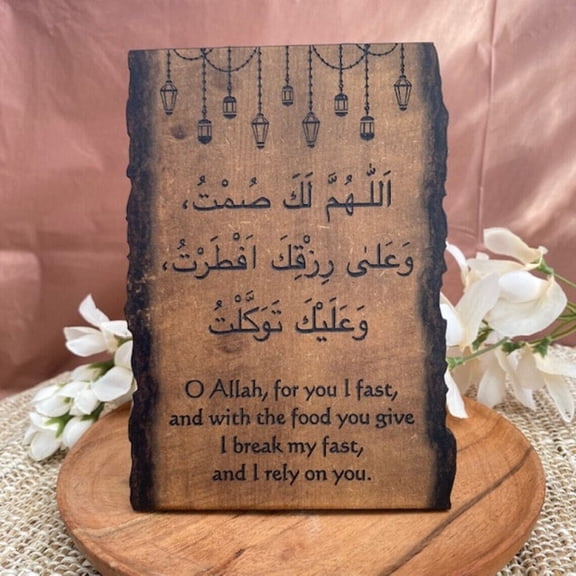 اَللّٰهُمَّ لَكَ صُمْتُ،
وَعَلىٰ رِزْقِكَ اَفْطَرْتُ،
وَعَلَيْكَ تَوَكَّلْتُ
O Allah, for you I fast,
and with the food you give
I break my fast,
and I rely on you.